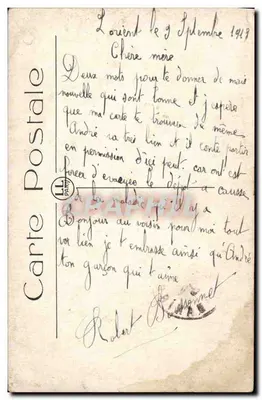 Lorient le 9 Septembre 1917
Chère mère
Deux mots pour te donner de mais
nouvelle qui sont bonne et j'espère
que ma carte te trouveras de même
André va très bien et il conte partir
en permission d'ici peut car on est
forcé d'envoyer le dépôt a causse
qu'il y a
Bonjour au voisin pour moi tout
va bien je t'embrasse ainsi qu'André
ton garçon qui t'aime
Robert
Carte Postale